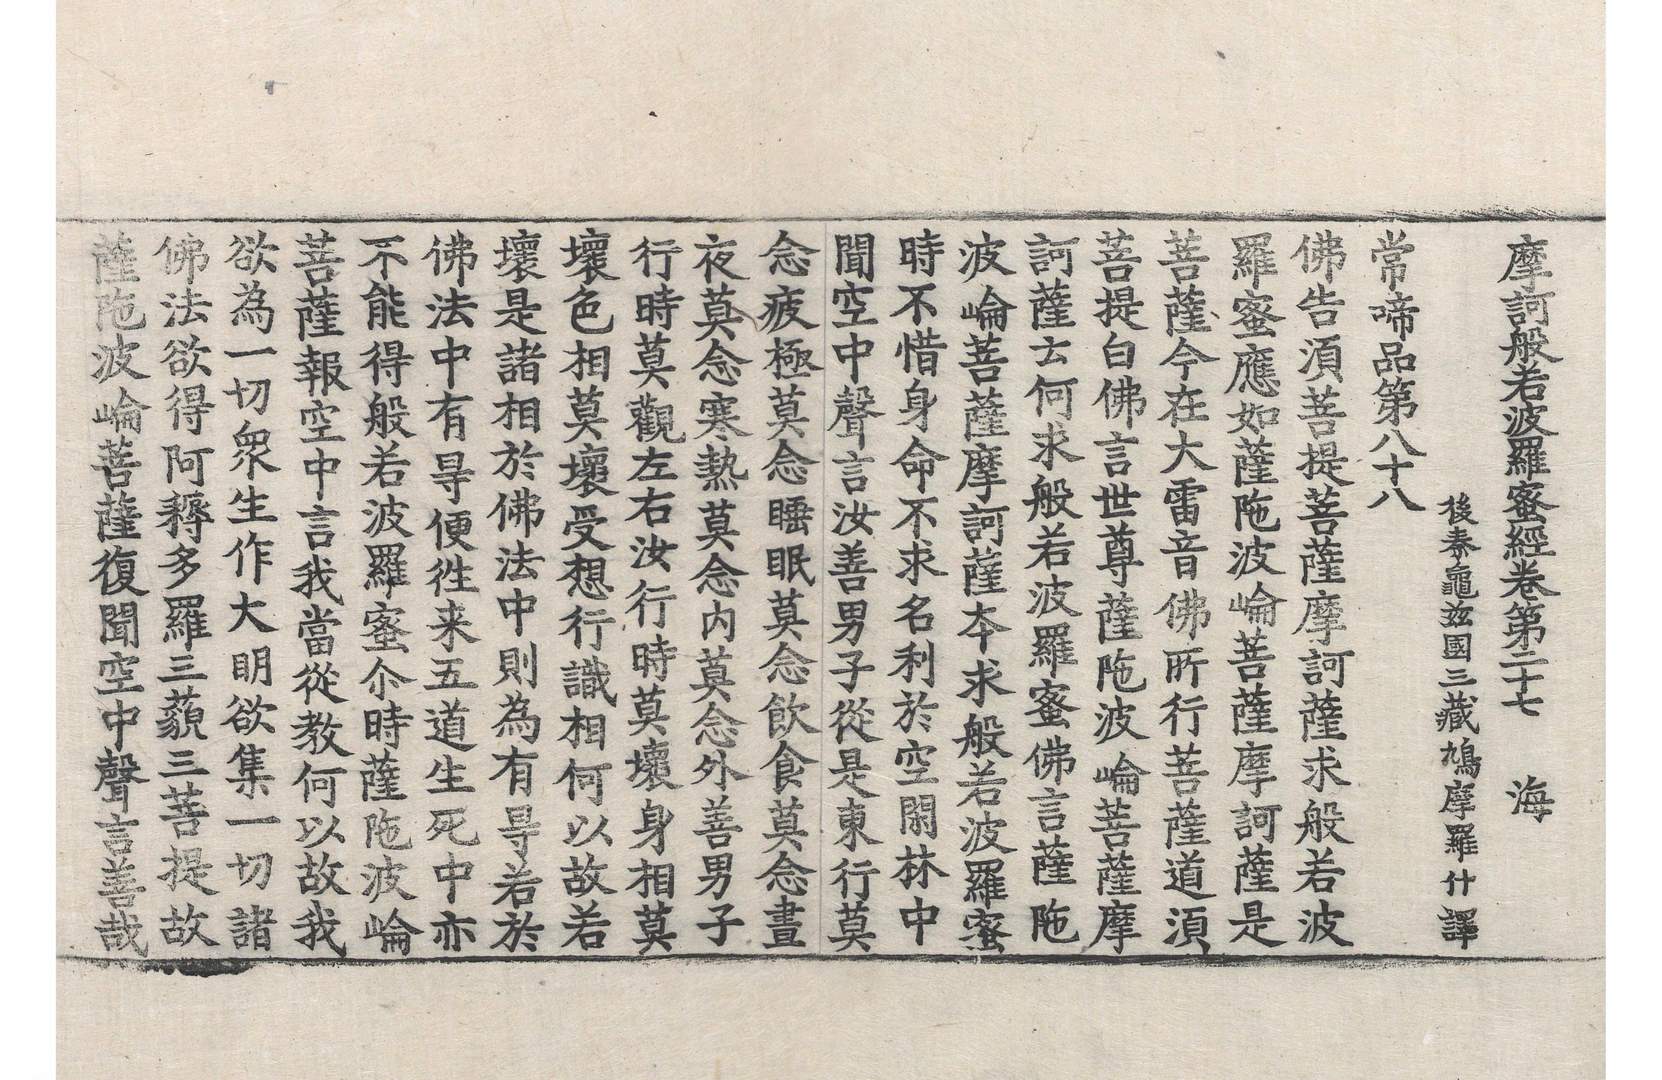 摩訶般若波羅蜜經卷第二十七　海
後秦龜玆國三藏鳩摩羅什譯
常啼品第八十八
佛告湏菩提菩薩摩訶薩求般若波
羅蜜應如薩陁波崘菩薩摩訶薩是
菩薩今在大雷音佛所行菩薩道湏
菩提白佛言世尊薩陁波崘菩薩摩
訶薩云何求般若波羅蜜佛言薩陁
波崘菩薩摩訶薩夲求般若波羅蜜
時不惜身命不求名利於空閑林中
聞空中聲言汝善男子從是東行莫
念疲極莫念睡眠莫念飲食莫念晝
夜莫念寒熱莫念内莫念外善男子
行時莫觀左右汝行時莫壞身相莫
壞色相莫壞受想行識相何以故若
壞是諸相於佛法中則為有㝵若於
佛法中有㝵便徃来五道生死中亦
不能得般若波羅蜜尒時薩陁波崘
菩薩報空中言我當從教何以故我
欲為一切衆生作大明欲集一切諸
佛法欲得阿耨多羅三藐三菩提故
薩陁波崘菩薩復聞空中聲言善哉